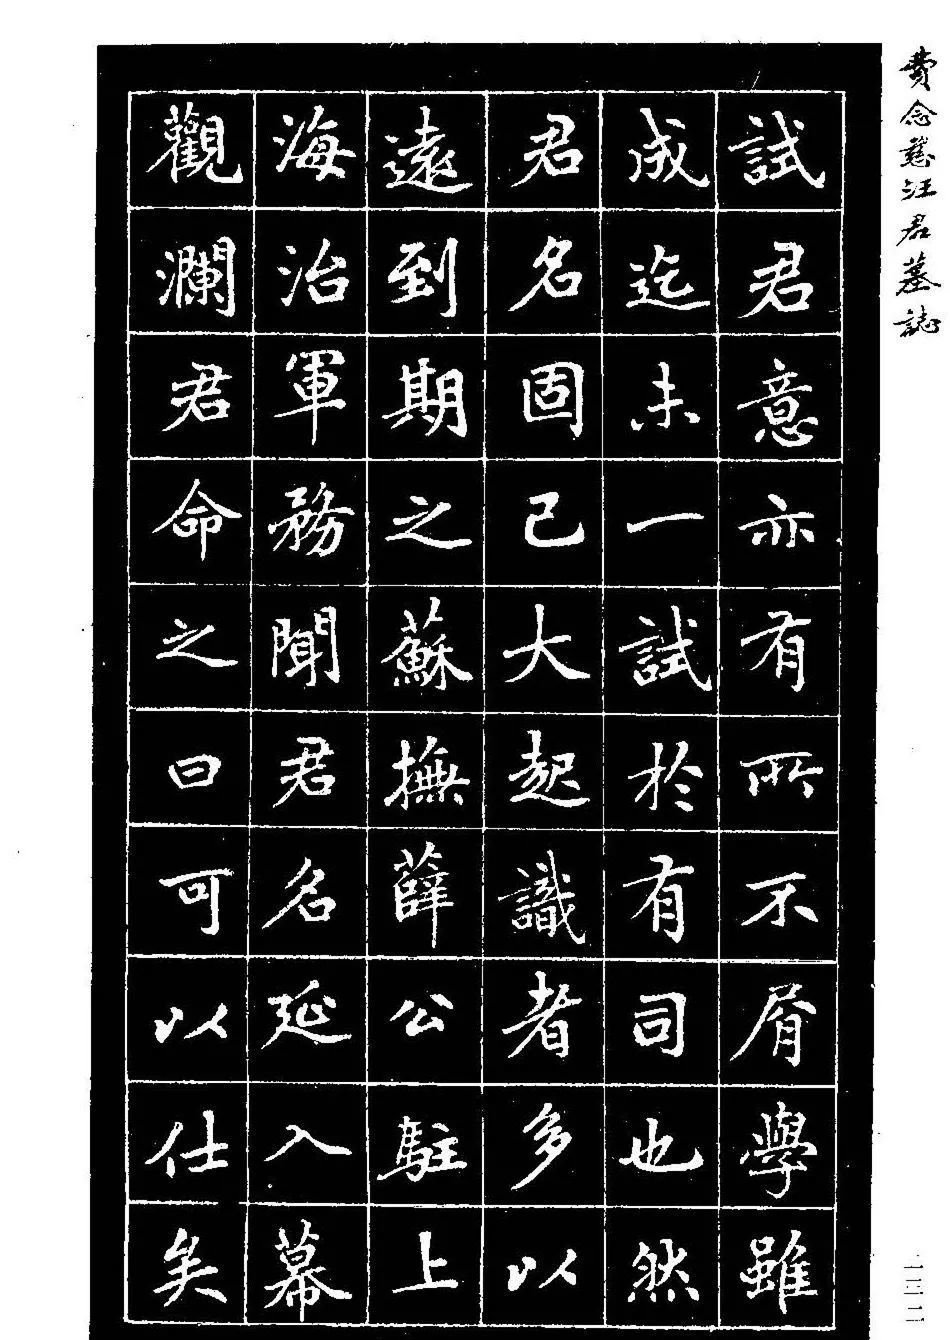 費念慈汪君墓誌
試君意亦有所不屑學雖
成迄未一試於有司也然
君名固已大起識者多以
遠到期之蘇撫薛公駐上
海治軍務聞君名延入幕
觀瀾君命之曰可以仕矣
一三二